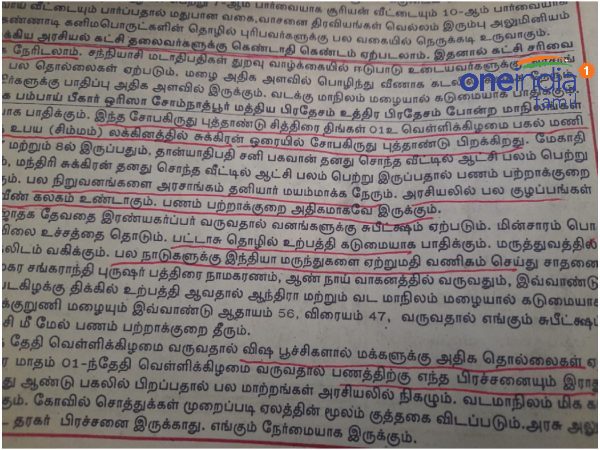 ாய் வீட்டையும் பார்ப்பதால் மதுபான வகை,வாசனை திரவியங்கள் வெல்லம் இரும்பு அலுமினியம்
கண்ணாடி கனிமபொருட்களின் தொழில் புரிபவர்களுக்கு பல வகையில் நெருக்கடி உருவாகும்.
க்கிய அரசியல் கட்சி தலைவர்களுக்கு கெண்டாதி கெண்டம் ஏற்படலாம். இதனால் கட்சி சரிவை
நேரிடலாம். சந்னியாசி மடாதிபதிகள் துறவு வாழ்க்கையில் ஈடுபாடு உடையவர்களுக்கு அரசாங்
பல தொல்லைகள் ஏற்படும். மழை அதிக அளவில் பொழிந்து வீணாக கடலி
ர்களுக்கு பாதிப்பு அதிக அளவில் இருக்கும். வடக்கு மாநிலம் மழையால் கடுமையாக பாதிக்கு
க பம்பாய் பீகார் ஒரிஸா சோம்நாத்பூர் மத்திய பிரதேசம் உத்திர பிரதேசம் போன்ற மாநிலங்கள்
யாக பாதிக்கும். இந்த சோபகிருது புத்தாண்டு சித்திரை திங்கள் 01உ வெள்ளிக்கிழமை பகல் மணி
உபய (சிம்மம்) லக்கினத்தில் சுக்கிரன் ஓரையில் சோபகிருது புத்தாண்டு பிறக்கிறது. மேகாதி
் மற்றும் 8ல் இருப்பதும். தான்யாதிபதி சனி பகவான் தனது சொந்த வீட்டில் ஆட்சி பலம் பெற்று
, மந்திரி சுக்கிரன் தனது சொந்த வீட்டில் ஆட்சி பலம் பெற்று இருப்பதால் பணம் பற்றாக்குறை
. பல நிறுவனங்களை அரசாங்கம் தனியார் மயம்மாக்க நேரும். அரசியலில் பல குழப்பங்கள்
வீண் கலகம் உண்டாகும். பணம் பற்றாக்குறை அதிகமாகவே இருக்கும்.
ஜாதக தேவதை இரண்யகர்ப்பர் வருவதால் வனங்களுக்கு சுபீட்க்ஷம் ஏற்படும். மின்சாரம் பொ
விலை உச்சத்தை தொடும். பட்டாசு தொழில் உற்பத்தி கடுமையாக பாதிக்கும். மருத்துவத்தில்
லிடம் வகிக்கும். பல நாடுகளுக்கு இந்தியா மருந்துகளை ஏற்றுமதி வணிகம் செய்து சாதனை
மகர சங்கராந்தி புருஷர் பத்திரை நாமகரணம், ஆண் நாய் வாகனத்தில் வருவதும், இவ்வாண்டு
படகிழக்கு திக்கில் உற்பத்தி ஆவதால் ஆந்திரா மற்றும் வட மாநிலம் மழையால் கடுமையாக
க்குறுணி மழையும் இவ்வாண்டு ஆதாயம் 56, விரையம் 47, வருவதால் எங்கும் சுபீட்க்ஷப்
சி மீ மேல் பணம் பற்றாக்குறை தீரும்.
தேதி வெள்ளிக்கிழமை வருவதால் விஷ பூச்சிகளால் மக்களுக்கு அதிக தொல்லைகள் ஏ
ர மாதம் 01-ந்தேதி வெள்ளிக்கிழமை வருவதால் பணத்திற்கு எந்த பிரச்சனையும் இரா
து ஆண்டு பகலில் பிறப்பதால் பல மாற்றங்கள் அரசியலில் நிகழும். வடமாநிலம் மிக க
கும். கோவில் சொத்துக்கள் முறைப்படி ஏலத்தின் மூலம் குத்தகை விடப்படும்.அரசு அலு
தரகர் பிரச்சனை இருக்காது. எங்கும் நேர்மையாக இருக்கும்.
oneindia
தமிழ்
1